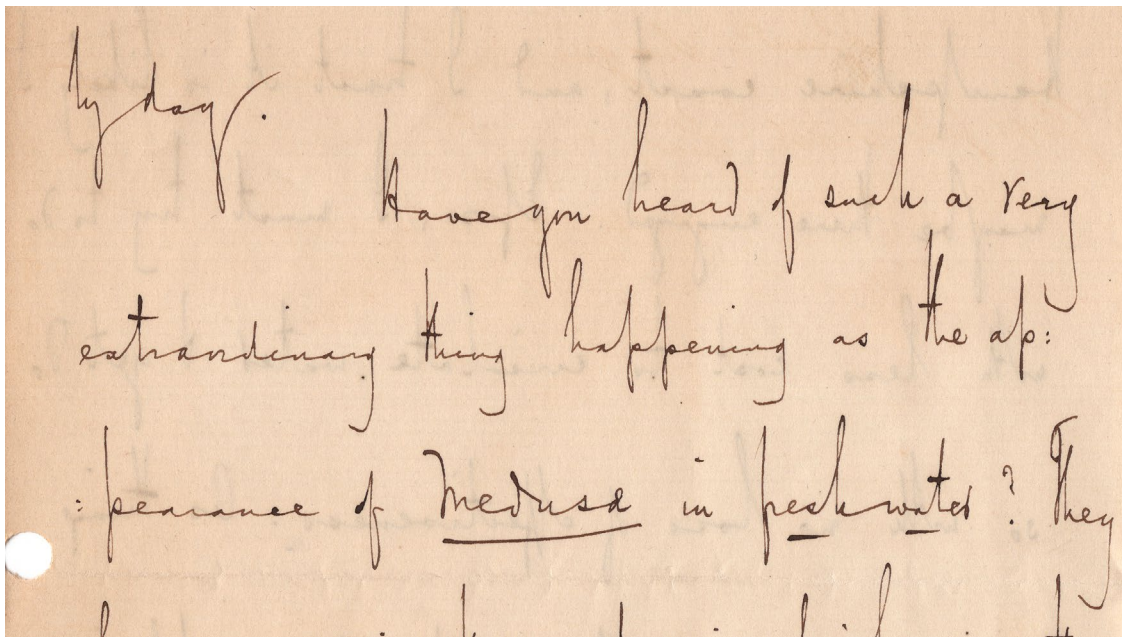 by day.
Have you heard of such a very
extraordinary thing happening as the ap:
:pearance of Medusa in fresh water? They